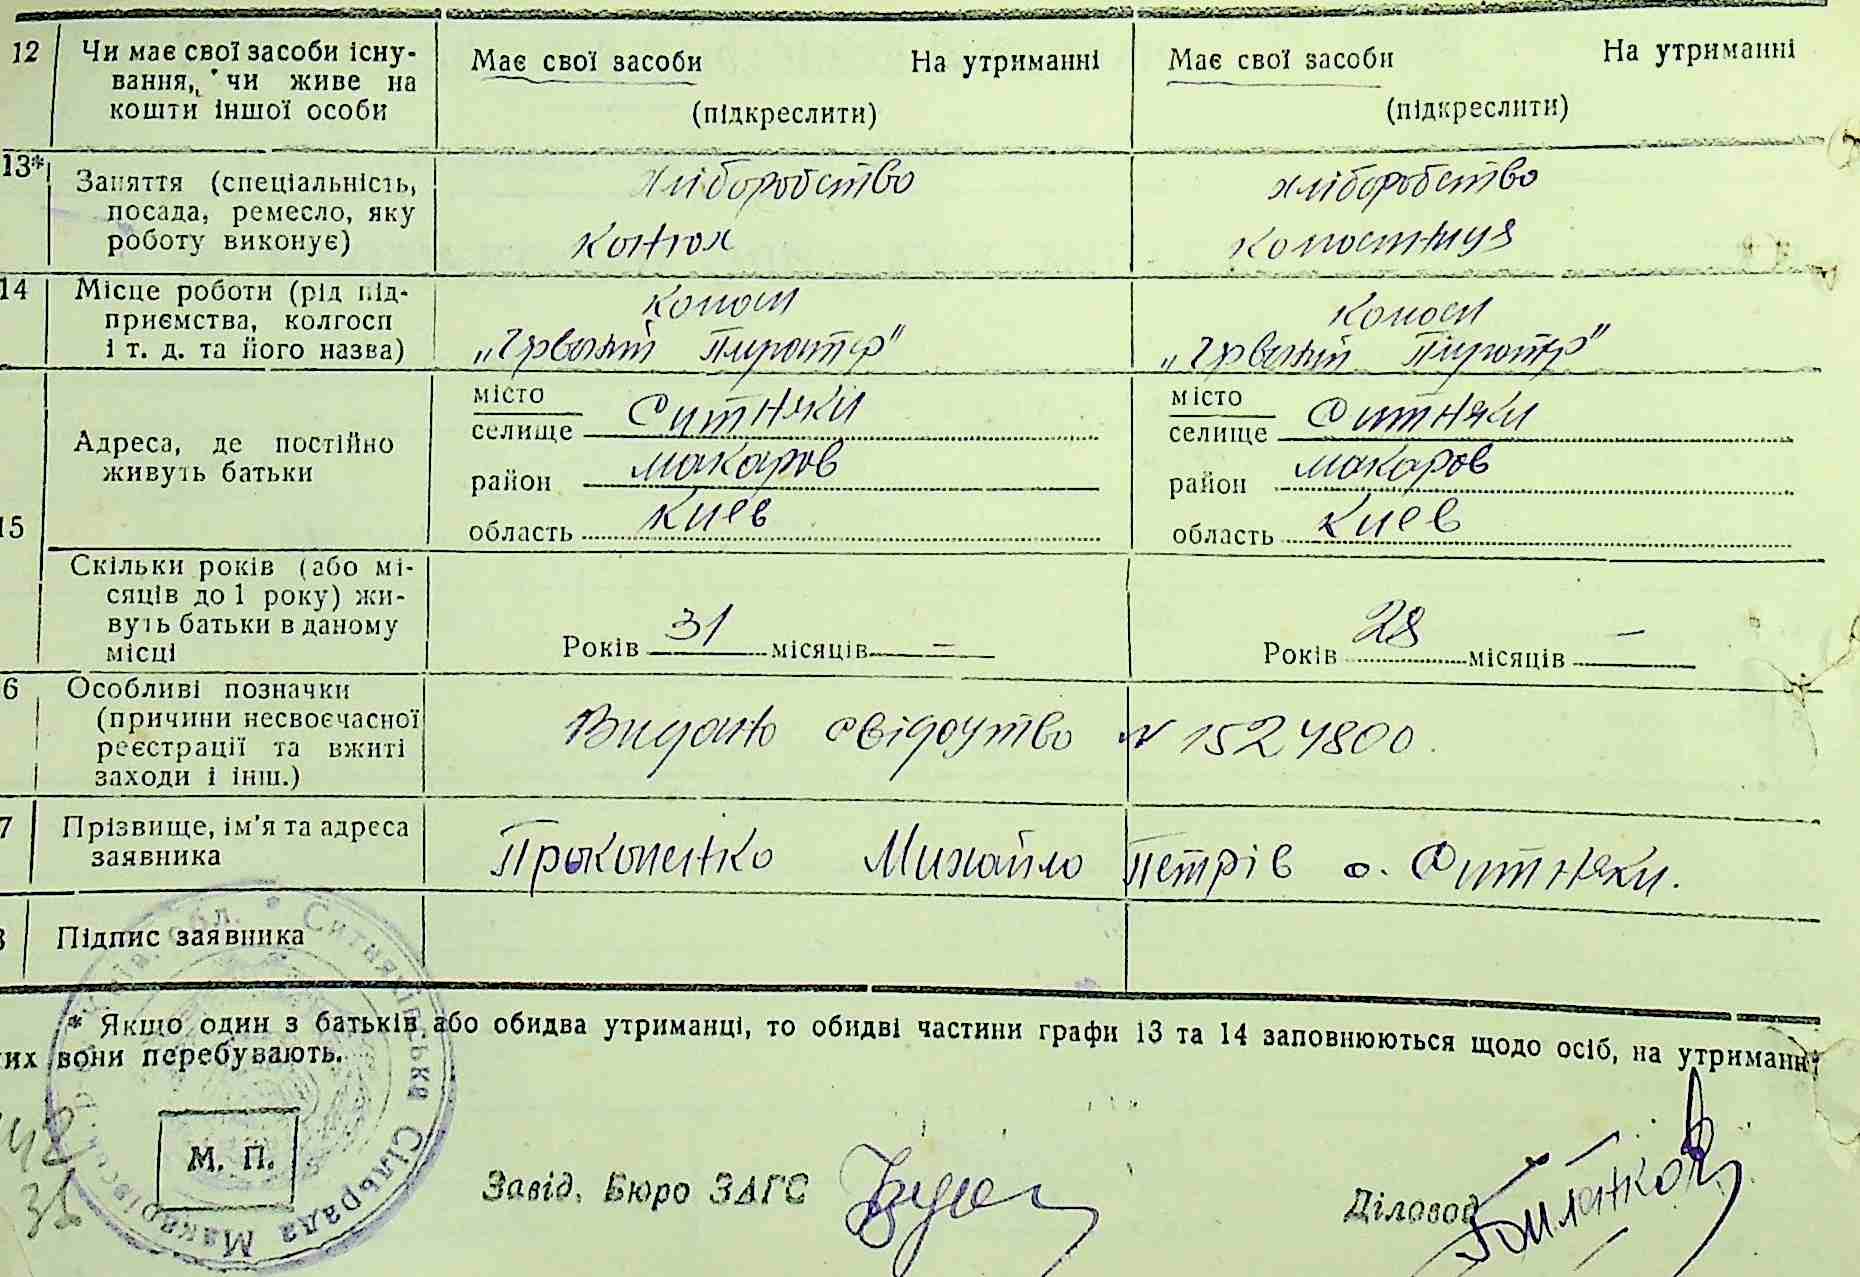 12 Чи має свої засоби існу- Має свої засоби На утриманні Має свої засоби На утриманні
вання, чи живе на
кошти іншої особи (підкреслити) (підкреслити)
13* Заняття (спеціальність, хліборобство хліборобство
посада, ремесло, яку
роботу виконує) конюх
14 Місце роботи (рід під-
приємства, колгосп
і т. д. та його назва)
15 Адреса, де постійно
живуть батьки
місто місто
селище Ситняки селище Ситняки
район Макаров район Макаров
область Киев область Киев
Скільки років (або мі-
сяців до 1 року) жи-
вуть батьки в даному
місці Років 31 місяців — Років 28 місяців —
6 Особливі позначки
(причини несвоєчасної
реєстрації та вжиті
заходи і інш.) Видано свідоцтво N 1524800.
7 Прізвище, ім'я та адреса
заявника Прокопенко Михайло Петрів с. Ситняки.
8 Підпис заявника
* Якщо один з батьків або обидва утриманці, то обидві частини графи 13 та 14 заповнюються щодо осіб, на утриманні
их вони перебувають.
обл. * Ситняківська Сільрада Макарівськ
М. П.
Завід. Бюро ЗАГС Діловод